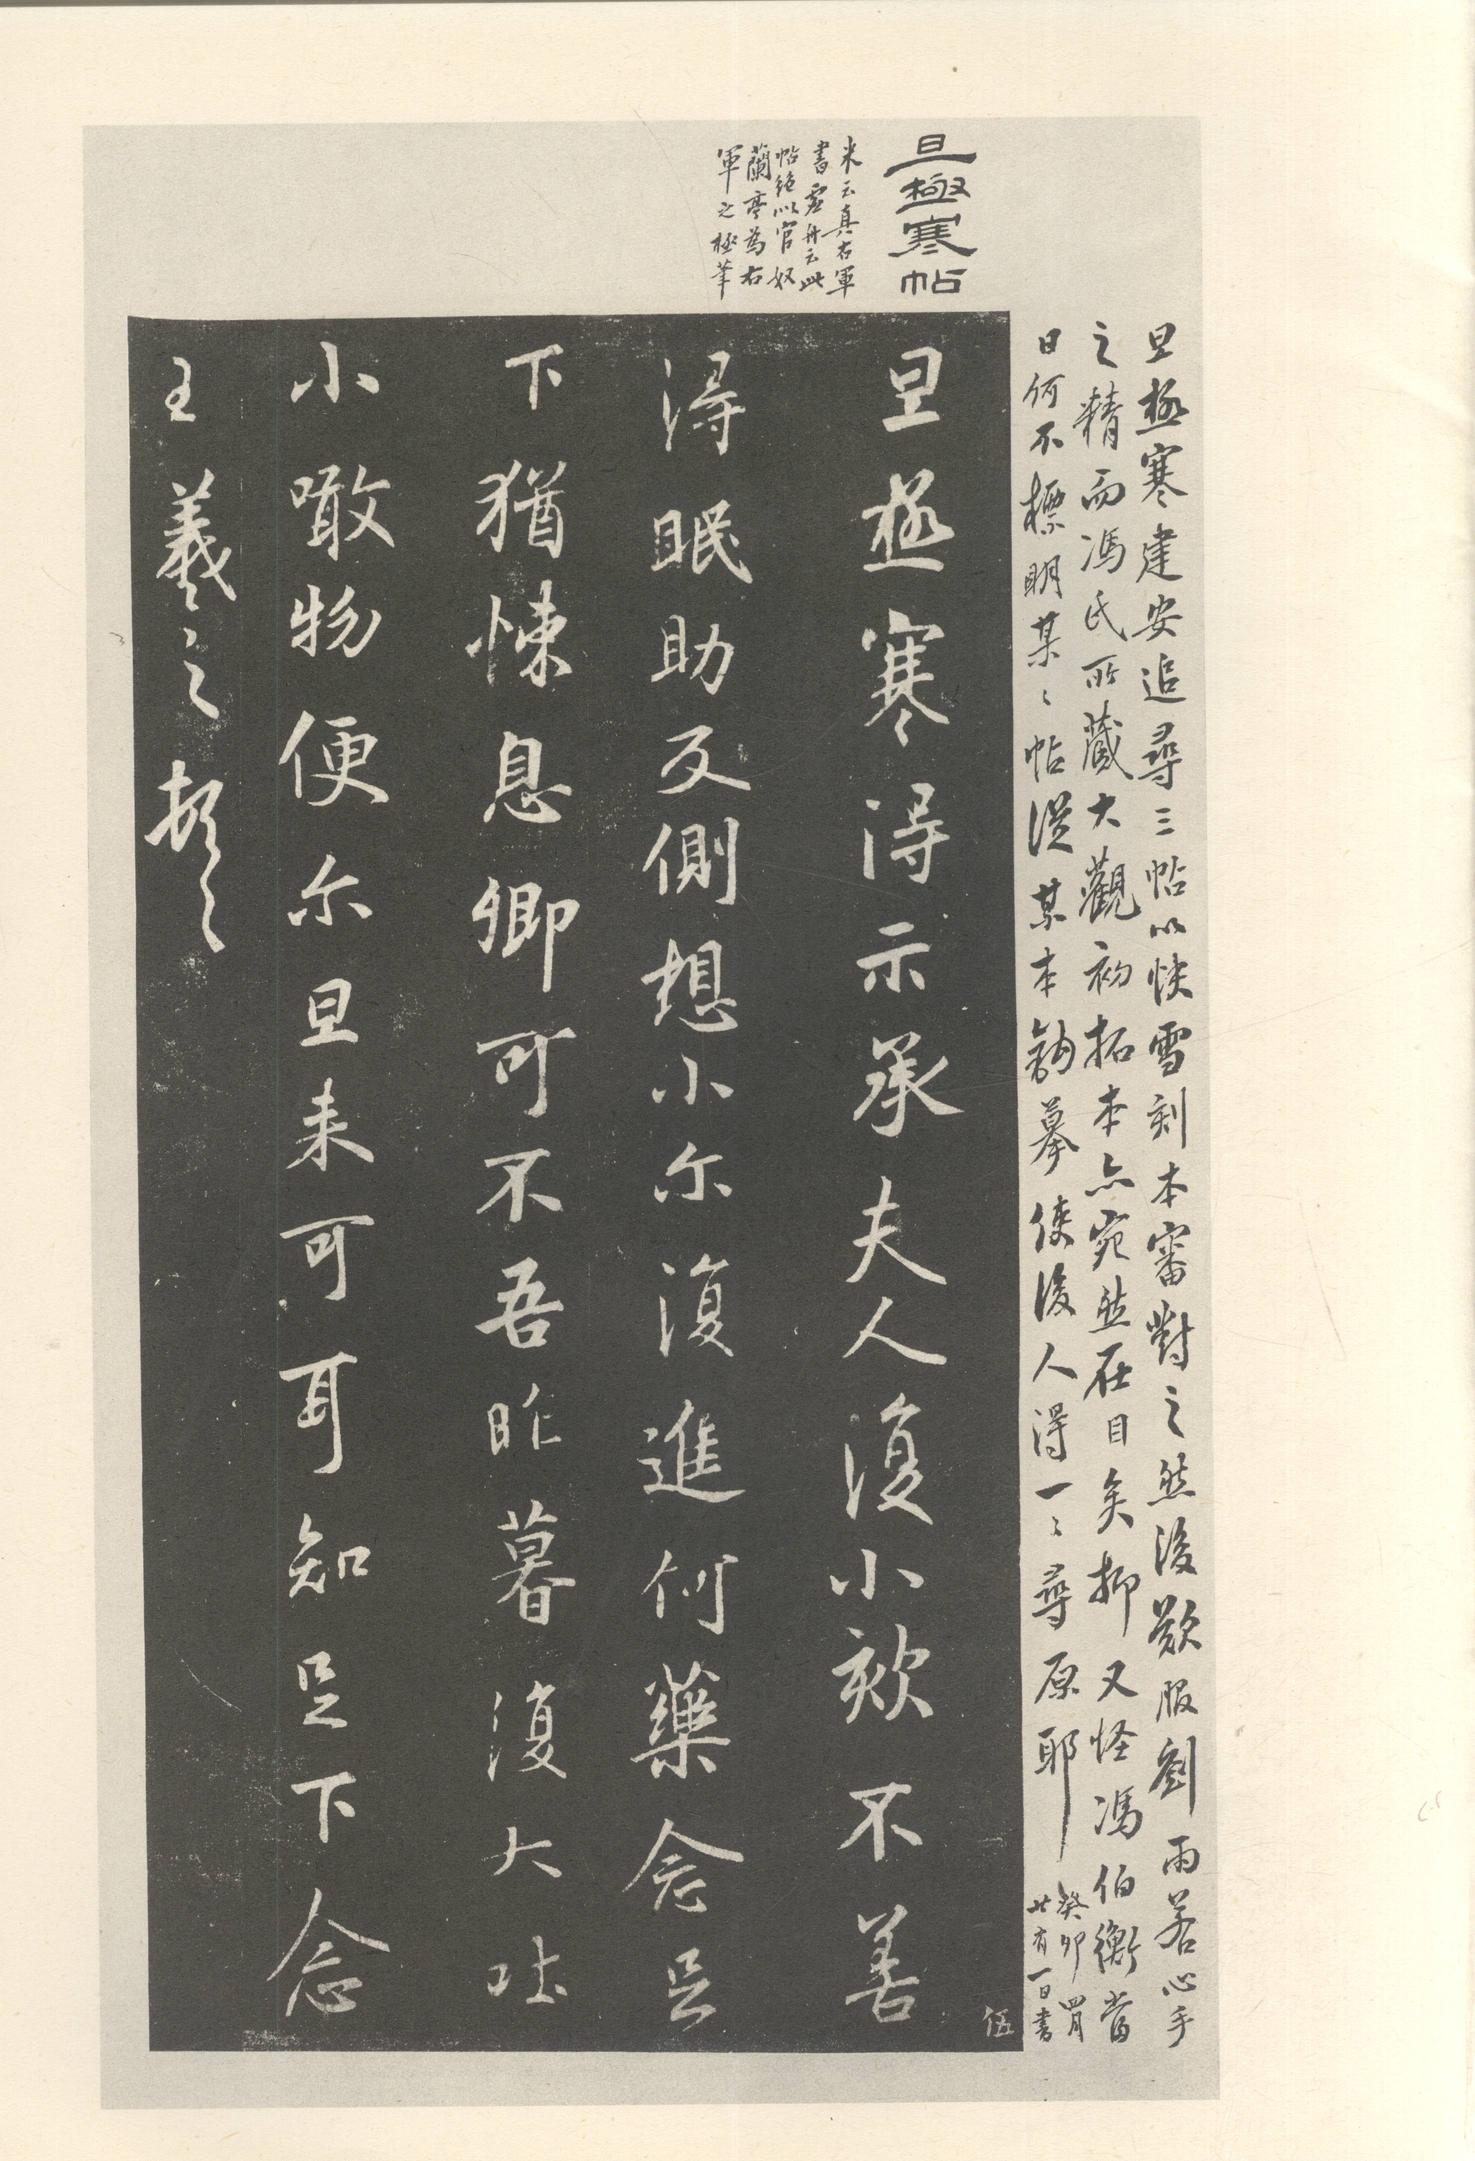 旦極寒帖
米云真右軍
書虛舟云此
帖絶以官奴
蘭亭為右
軍之極筆
旦極寒建安追尋三帖以快雪刻本審對之然後歎服劉雨若心手
之精而馮氏所藏大觀初拓本亦宛然在目矣抑又怪馮伯衡當
日何不標明某〻帖從某本鈎摹使後人得一〻尋原耶
癸卯四月
廿有一日書
旦極寒得示承夫人復小欬不善
得眠助反側想小尔復進何藥念足
下猶悚息卿可不吾昨暮復大吐
小噉物便尔旦来可耳知足下念
王羲之頓首
伍